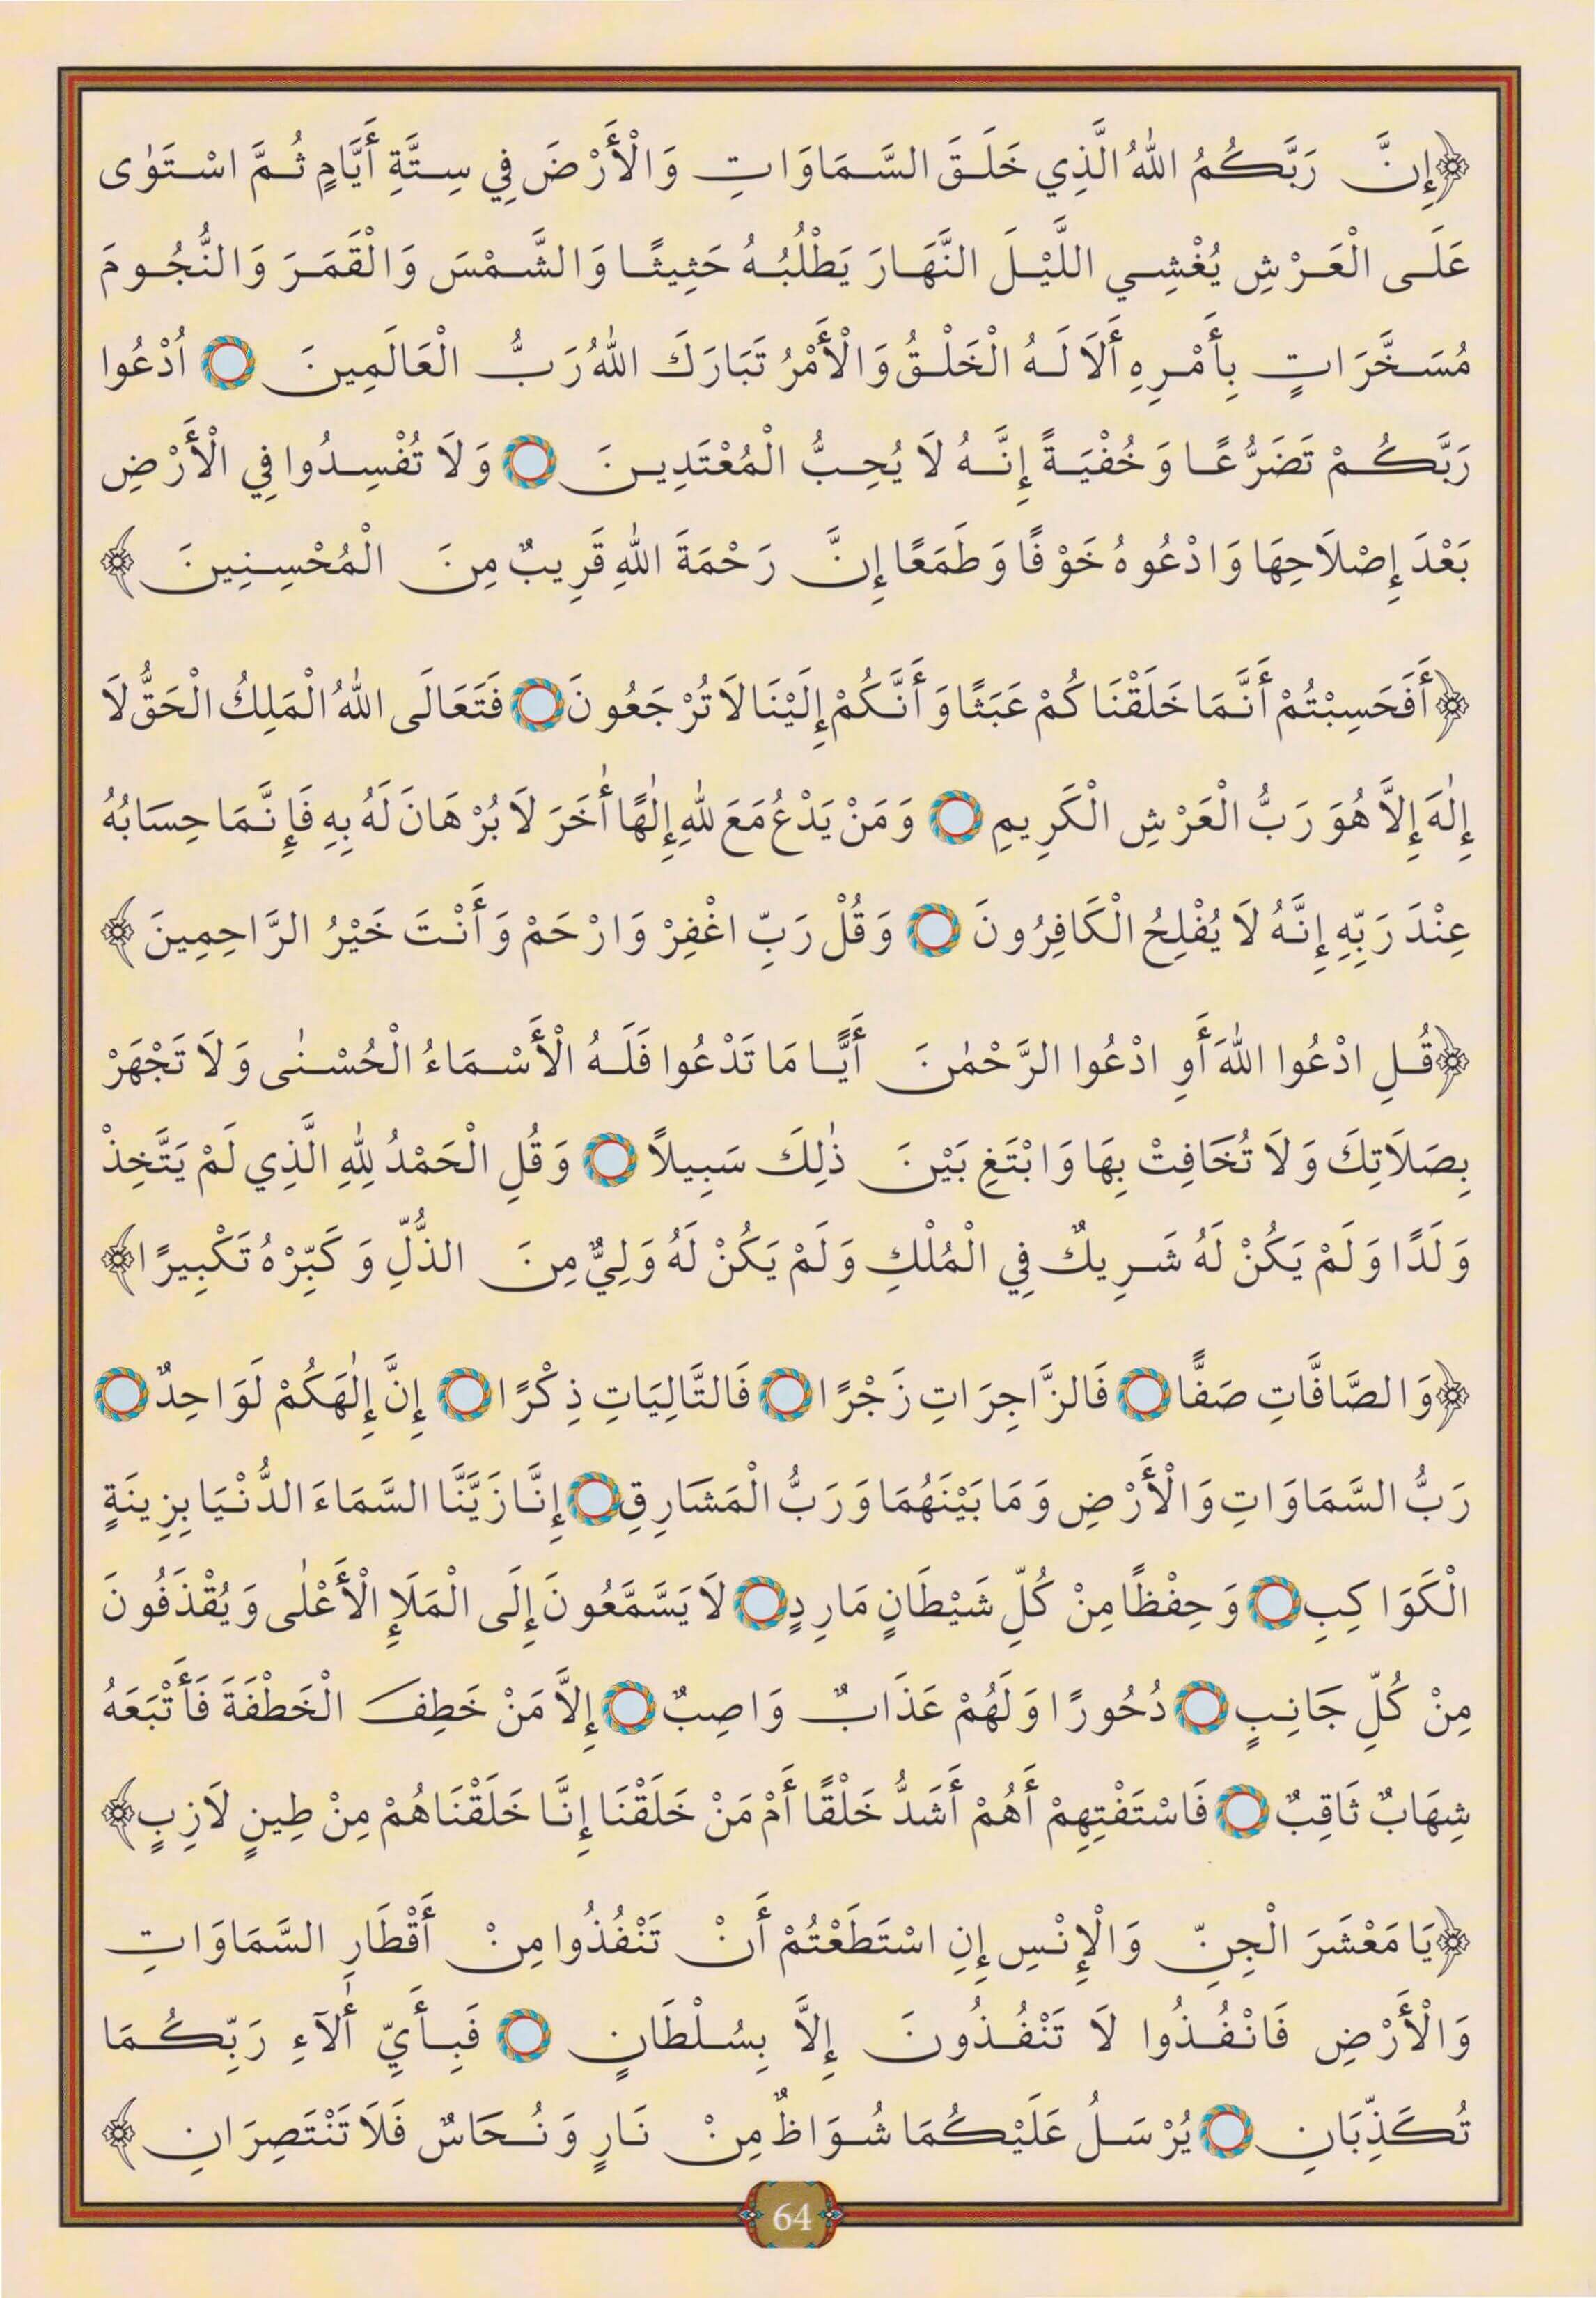 ﴿إِنَّ رَبَّكُمُ اللّٰهُ الَّذِي خَلَقَ السَّمَاوَاتِ وَالْأَرْضَ فِي سِتَّةِ أَيَّامٍ ثُمَّ اسْتَوٰى
عَلَى الْعَرْشِ يُغْشِي اللَّيْلَ النَّهَارَ يَطْلُبُهُ حَثِيثًا وَالشَّمْسَ وَالْقَمَرَ وَالنُّجُومَ
مُسَخَّرَاتٍ بِأَمْرِهِ أَلَا لَهُ الْخَلْقُ وَالْأَمْرُ تَبَارَكَ اللّٰهُ رَبُّ الْعَالَمِينَ ۝ اُدْعُوا
رَبَّكُمْ تَضَرُّعًا وَخُفْيَةً إِنَّهُ لَا يُحِبُّ الْمُعْتَدِينَ ۝ وَلَا تُفْسِدُوا فِي الْأَرْضِ
بَعْدَ إِصْلَاحِهَا وَادْعُوهُ خَوْفًا وَطَمَعًا إِنَّ رَحْمَةَ اللّٰهِ قَرِيبٌ مِنَ الْمُحْسِنِينَ﴾
﴿أَفَحَسِبْتُمْ أَنَّمَا خَلَقْنَاكُمْ عَبَثًا وَأَنَّكُمْ إِلَيْنَا لَا تُرْجَعُونَ ۝ فَتَعَالَى اللّٰهُ الْمَلِكُ الْحَقُّ لَا
إِلٰهَ إِلَّا هُوَ رَبُّ الْعَرْشِ الْكَرِيمِ ۝ وَمَنْ يَدْعُ مَعَ للّٰهِ إِلٰهًا أٰخَرَ لَا بُرْهَانَ لَهُ بِهِ فَإِنَّمَا حِسَابُهُ
عِنْدَ رَبِّهِ إِنَّهُ لَا يُفْلِحُ الْكَافِرُونَ ۝ وَقُلْ رَبِّ اغْفِرْ وَارْحَمْ وَأَنْتَ خَيْرُ الرَّاحِمِينَ﴾
﴿قُلِ ادْعُوا اللّٰهَ أَوِ ادْعُوا الرَّحْمٰنَ أَيًّا مَا تَدْعُوا فَلَهُ الْأَسْمَاءُ الْحُسْنٰى وَلَا تَجْهَرْ
بِصَلَاتِكَ وَلَا تُخَافِتْ بِهَا وَابْتَغِ بَيْنَ ذٰلِكَ سَبِيلًا ۝ وَقُلِ الْحَمْدُ لِلّٰهِ الَّذِي لَمْ يَتَّخِذْ
وَلَدًا وَلَمْ يَكُنْ لَهُ شَرِيكٌ فِي الْمُلْكِ وَلَمْ يَكُنْ لَهُ وَلِيٌّ مِنَ الذُّلِّ وَكَبِّرْهُ تَكْبِيرًا﴾
﴿وَالصَّافَّاتِ صَفًّا ۝ فَالزَّاجِرَاتِ زَجْرًا ۝ فَالتَّالِيَاتِ ذِكْرًا ۝ إِنَّ إِلٰهَكُمْ لَوَاحِدٌ ۝
رَبُّ السَّمَاوَاتِ وَالْأَرْضِ وَمَا بَيْنَهُمَا وَرَبُّ الْمَشَارِقِ ۝ إِنَّا زَيَّنَّا السَّمَاءَ الدُّنْيَا بِزِينَةٍ
الْكَوَاكِبِ ۝ وَحِفْظًا مِنْ كُلِّ شَيْطَانٍ مَارِدٍ ۝ لَا يَسَّمَّعُونَ إِلَى الْمَلَإِ الْأَعْلٰى وَيُقْذَفُونَ
مِنْ كُلِّ جَانِبٍ ۝ دُحُورًا وَلَهُمْ عَذَابٌ وَاصِبٌ ۝ إِلَّا مَنْ خَطِفَ الْخَطْفَةَ فَأَتْبَعَهُ
شِهَابٌ ثَاقِبٌ ۝ فَاسْتَفْتِهِمْ أَهُمْ أَشَدُّ خَلْقًا أَمْ مَنْ خَلَقْنَا إِنَّا خَلَقْنَاهُمْ مِنْ طِينٍ لَازِبٍ﴾
﴿يَا مَعْشَرَ الْجِنِّ وَالْإِنْسِ إِنِ اسْتَطَعْتُمْ أَنْ تَنْفُذُوا مِنْ أَقْطَارِ السَّمَاوَاتِ
وَالْأَرْضِ فَانْفُذُوا لَا تَنْفُذُونَ إِلَّا بِسُلْطَانٍ ۝ فَبِأَيِّ أٰلَاءِ رَبِّكُمَا
تُكَذِّبَانِ ۝ يُرْسَلُ عَلَيْكُمَا شُوَاظٌ مِنْ نَارٍ وَنُحَاسٌ فَلَا تَنْتَصِرَانِ﴾
64